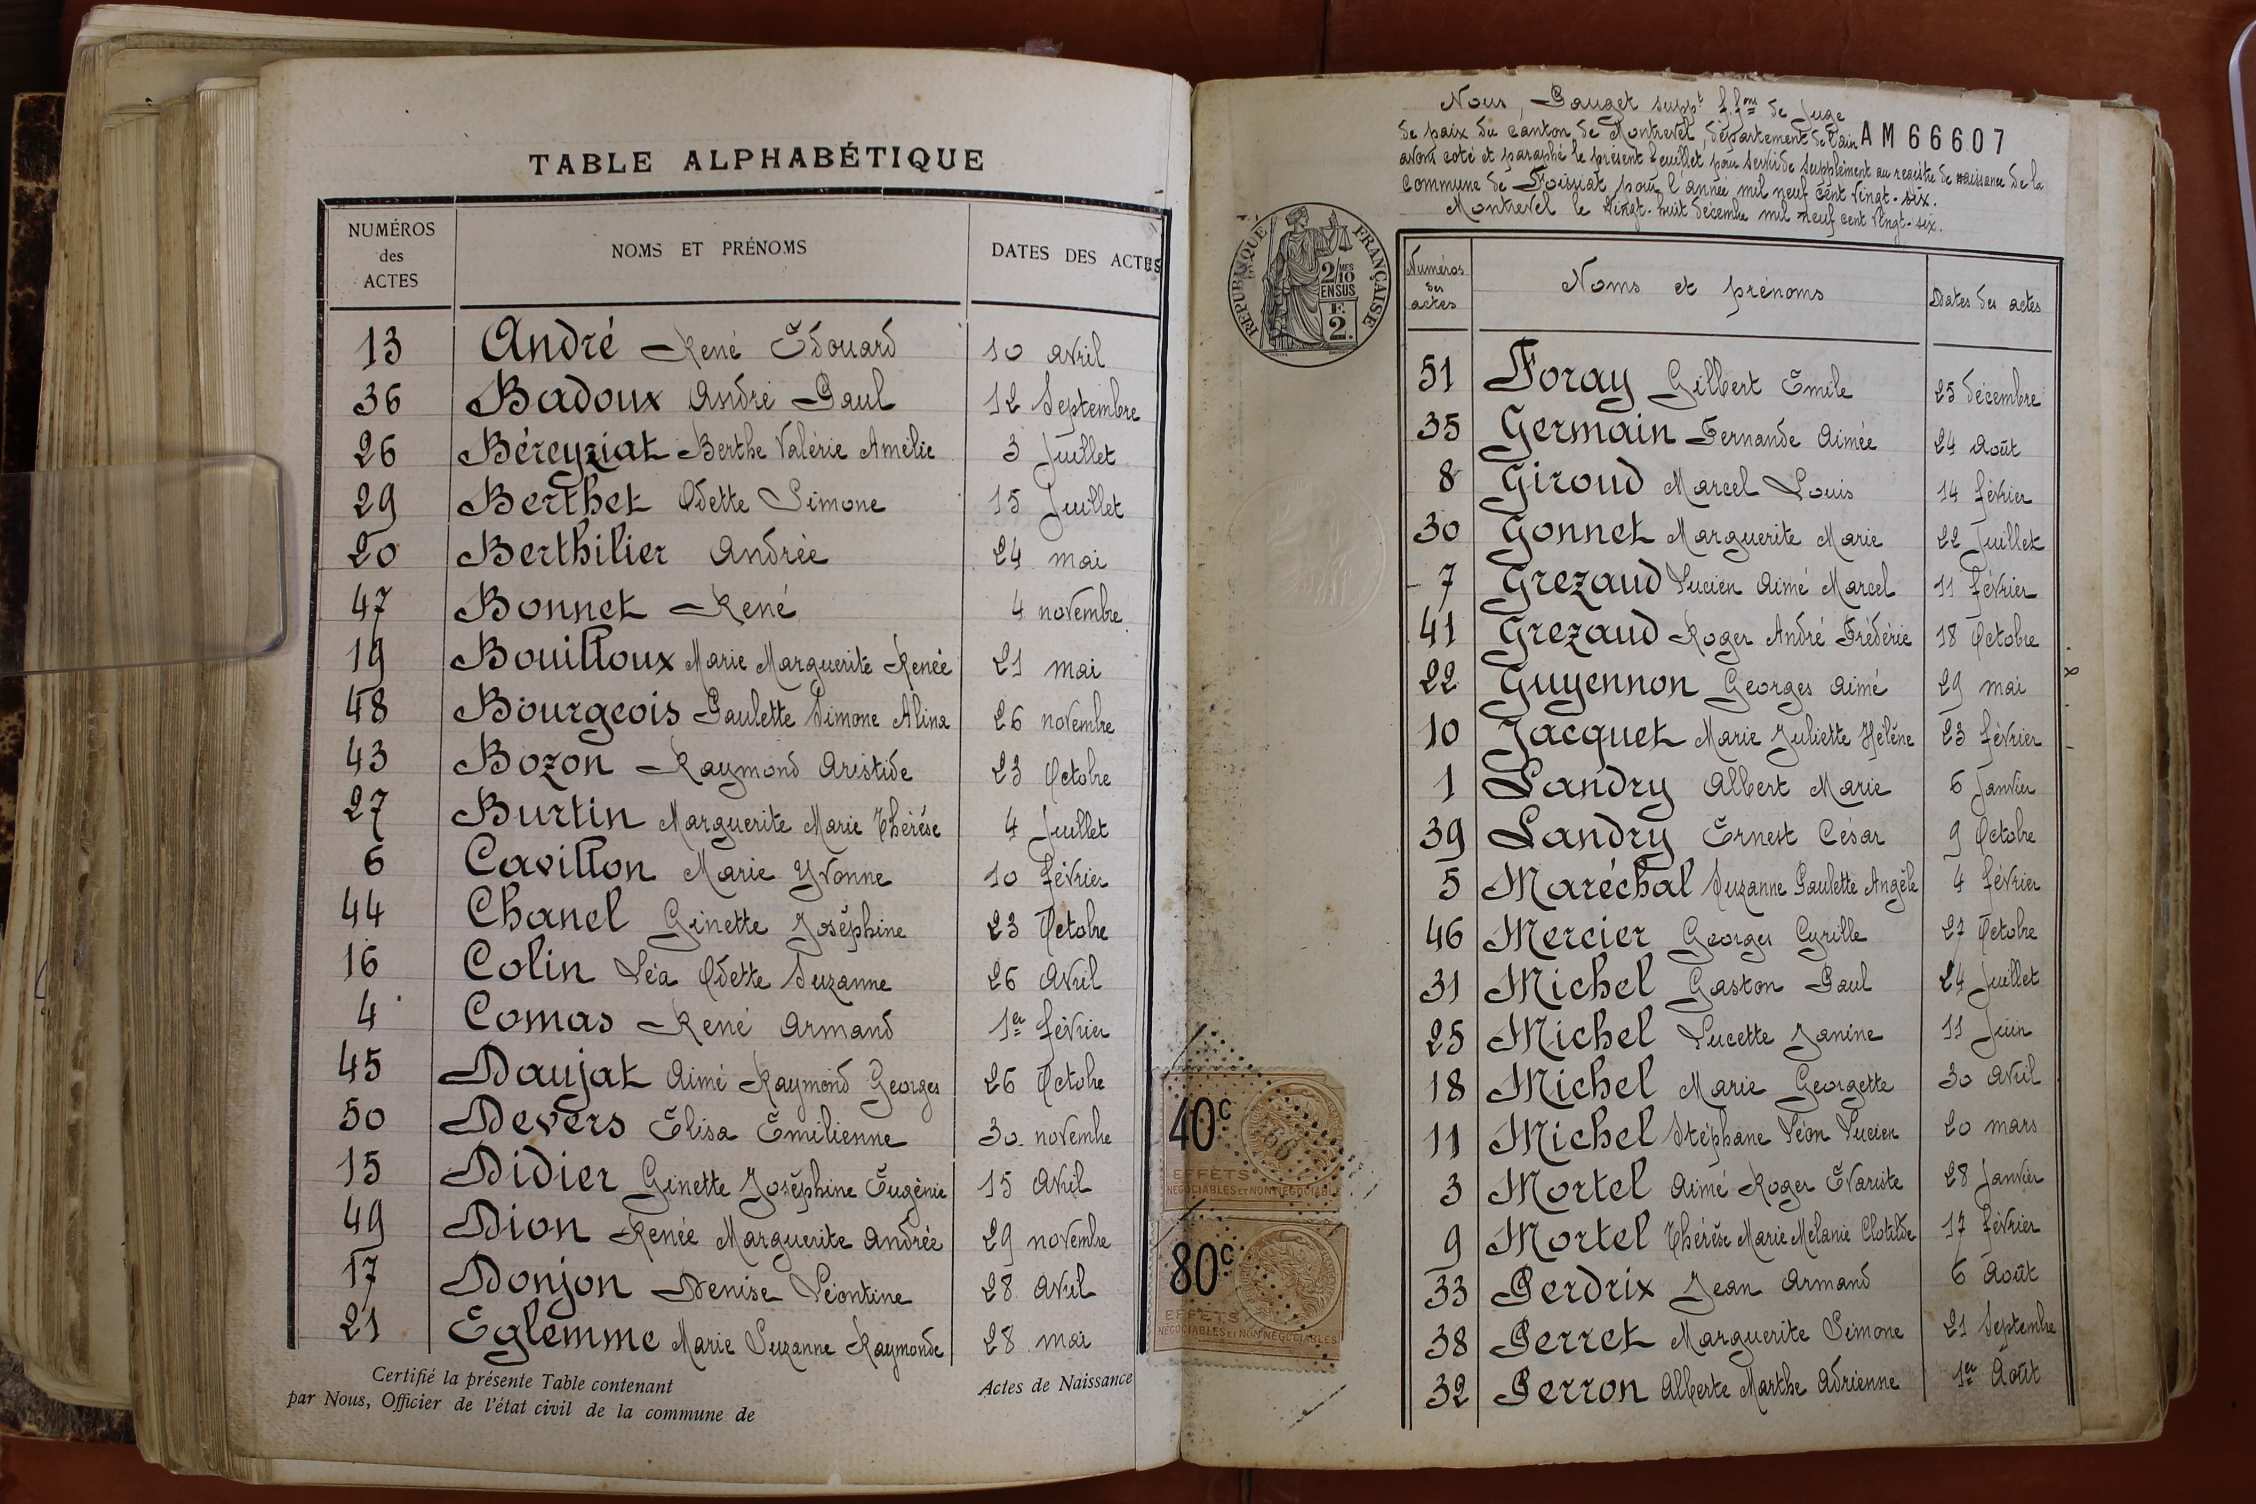 TABLE ALPHABÉTIQUE
NUMÉROS des ACTES NOMS ET PRÉNOMS DATES DES ACTES
13 André René Édouard 10 avril
36 Badoux André Paul 12 Septembre
26 Béreyziat Berthe Valérie Amélie 3 Juillet
29 Berthet Odette Simone 15 Juillet
20 Berthilier Andrée 24 mai
47 Bonnet René 4 novembre
19 Bouilloux Marie Marguerite Renée 21 mai
48 Bourgeois Paulette Simone Alina 26 novembre
43 Bozon Raymond Aristide 23 Octobre
27 Burtin Marguerite Marie Thérèse 4 Juillet
6 Cavillon Marie Yvonne 10 février
44 Chanel Ginette Joséphine 23 Octobre
16 Colin Léa Odette Suzanne 26 Avril
4 Comas René Armand 1er février
45 Daujat Aimé Raymond Georges 26 Octobre
50 Devers Élisa Émilienne 30 novembre
15 Didier Ginette Joséphine Eugénie 15 Avril
49 Dion Renée Marguerite Andrée 29 novembre
17 Donjon Denise Léontine 28 Avril
21 Eglemme Marie Suzanne Raymonde 28 mai
Certifié la présente Table contenant Actes de Naissance
par Nous, Officier de l'état civil de la commune de
Nous, Pauget suppt f. fons de Juge
de paix du canton de Montrevel, département de l'Ain
avons coté et paraphé le présent feuillet pour servir de supplément au registre de naissance de la
Commune de Foissiat pour l'année mil neuf cent vingt-six.
Montrevel le vingt-huit décembre mil neuf cent vingt-six.
AM 66607
RÉPUBLIQUE FRANÇAISE
2/10 MES
EN SUS
F.
2.
Numéros des actes Noms et prénoms Dates des actes
51 Foray Gilbert Émile 25 décembre
35 Germain Fernande Aimée 24 Août
8 Giroud Marcel Louis 14 février
30 Gonnet Marguerite Marie 22 Juillet
7 Grezaud Lucien Aimé Marcel 11 février
41 Grezaud Roger André Frédéric 18 Octobre
22 Guyennon Georges Aimé 29 mai
10 Jacquet Marie Juliette Hélène 23 février
1 Landry Albert Marie 6 Janvier
39 Landry Ernest César 9 Octobre
5 Maréchal Suzanne Paulette Angèle 4 février
46 Mercier Georges Cyrille 27 Octobre
31 Michel Gaston Paul 24 Juillet
25 Michel Lucette Janine 11 Juin
18 Michel Marie Georgette 30 Avril
11 Michel Stéphane Léon Lucien 20 mars
3 Mortel Aimé Roger Évariste 28 Janvier
9 Mortel Thérèse Marie Mélanie Clotilde 17 février
33 Perdrix Jean Armand 6 Août
38 Perret Marguerite Simone 21 Septembre
32 Perron Alberte Marthe Adrienne 1er Août
40c
EFFETS
NÉGOCIABLES ET NON NÉGOCIABLES
80c
EFFETS
NÉGOCIABLES ET NON NÉGOCIABLES